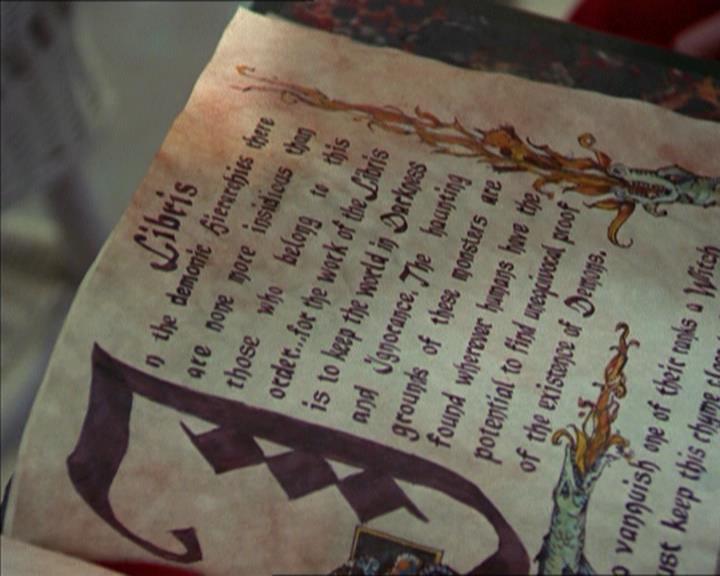 Libris
In the demonic hierarchies there
are none more insidious than
those who belong to this
order...for the work of the Libris
is to keep the world in Darkness
and Ignorance. The haunting
grounds of these monsters are
found wherever humans have the
potential to find unequivocal proof
of the existence of Demons.
vanquish one of their ranks a Witch
keep this rhyme